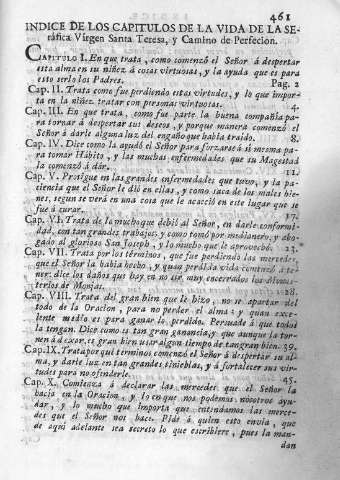 461
INDICE DE LOS CAPITULOS DE LA VIDA DE LA SE-
ráfica Virgen Santa Teresa, y Camino de Perfeción.
CAPITULO I. En que trata, como comenzó el Señor á despertar
esta alma en su niñez á cosas virtuosas, y la ayuda que es para
esto serlo los Padres. Pag. 2
Cap. II. Trata como fue perdiendo estas virtudes, y lo que impor-
ta en la niñez tratar con personas virtuosas. 4.
Cap. III. En que trata, como fue parte la buena compañia pa-
ra tornar á despertar sus deseos, y porque manera comenzó el
Señor á darle alguna luz del engaño que habia traido. 8.
Cap. IV. Dice como la ayudó el Señor para forzarse á sí misma pa-
ra tomar Hábito, y las muchas enfermedades que su Magestad
la comenzó á dar. 11.
Cap. V. Prosigue en las grandes enfermedades que tuvo, y la pa-
ciencia que el Señor le dió en ellas, y como saca de los males bie-
nes, segun se verá en una cosa que le acaeció en este lugar que se
fue á curar. 17.
Cap. VI. Trata de lo mucho que debió al Señor, en darle conformi-
dad, con tan grandes trabajos, y como tomó por medianero, y abo-
gado al glorioso San Joseph, y lo mucho que le aprovechó. 23.
Cap. VII. Trata por los términos, que fue perdiendo las mercedes,
que el Señor la habia hecho, y quan perdida vida comenzó á te-
ner: dice los daños que hay en no ser muy encerrados los Monas-
terios de Monjas. 28.
Cap. VIII. Trata del gran bien que le hizo, no se apartar del
todo de la Oracion, para no perder el alma: y quan exce-
lente medio es para ganar lo perdido. Persuade á que todos
la tengan. Dice como es tan gran ganancia, y que aunque la tor-
nen á dexar, es gran bien usar algun tiempo de tan gran bien. 39.
Cap. IX. Trata por qué terminos comenzó el Señor á despertar su al-
ma, y darle luz en tan grandes tinieblas, y á fortalecer sus vir-
tudes para no ofenderle. 45.
Cap. X. Comienza á declarar las mercedes que el Señor la
hacia en la Oracion, y lo en que nos podemos nosotros ayu-
dar, y lo mucho que importa que entendamos las merce-
des que el Señor nos hace. Pide á quien esto envia, que
de aqui adelante sea secreto lo que escribiere, pues la man-
dan